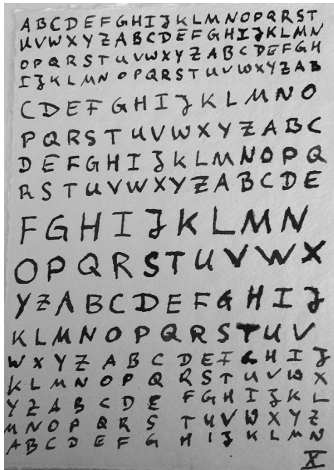 ABCDEFGHIJKLMNOPQRST
UVWXYZABCDEFGHIJKLMN
OPQRSTUVWXYZABCDEFGH
IJKLMNOPQRSTUVWXYZAB
CDEFGHIJKLMNO
PQRSTUVWXYZABC
DEFGHIJKLMNOPQ
RSTUVWXYZABCDE
FGHIJKLMN
OPQRSTUVWX
YZABCDEFGHIJ
KLMNOPQRSTUV
WXYZABCDEFGHIJ
KLMNOPQRSTUVWX
YZABCDEFGHIJKL
MNOPQRSTUVWXYZ
ABCDEFGHIJKLMN
X